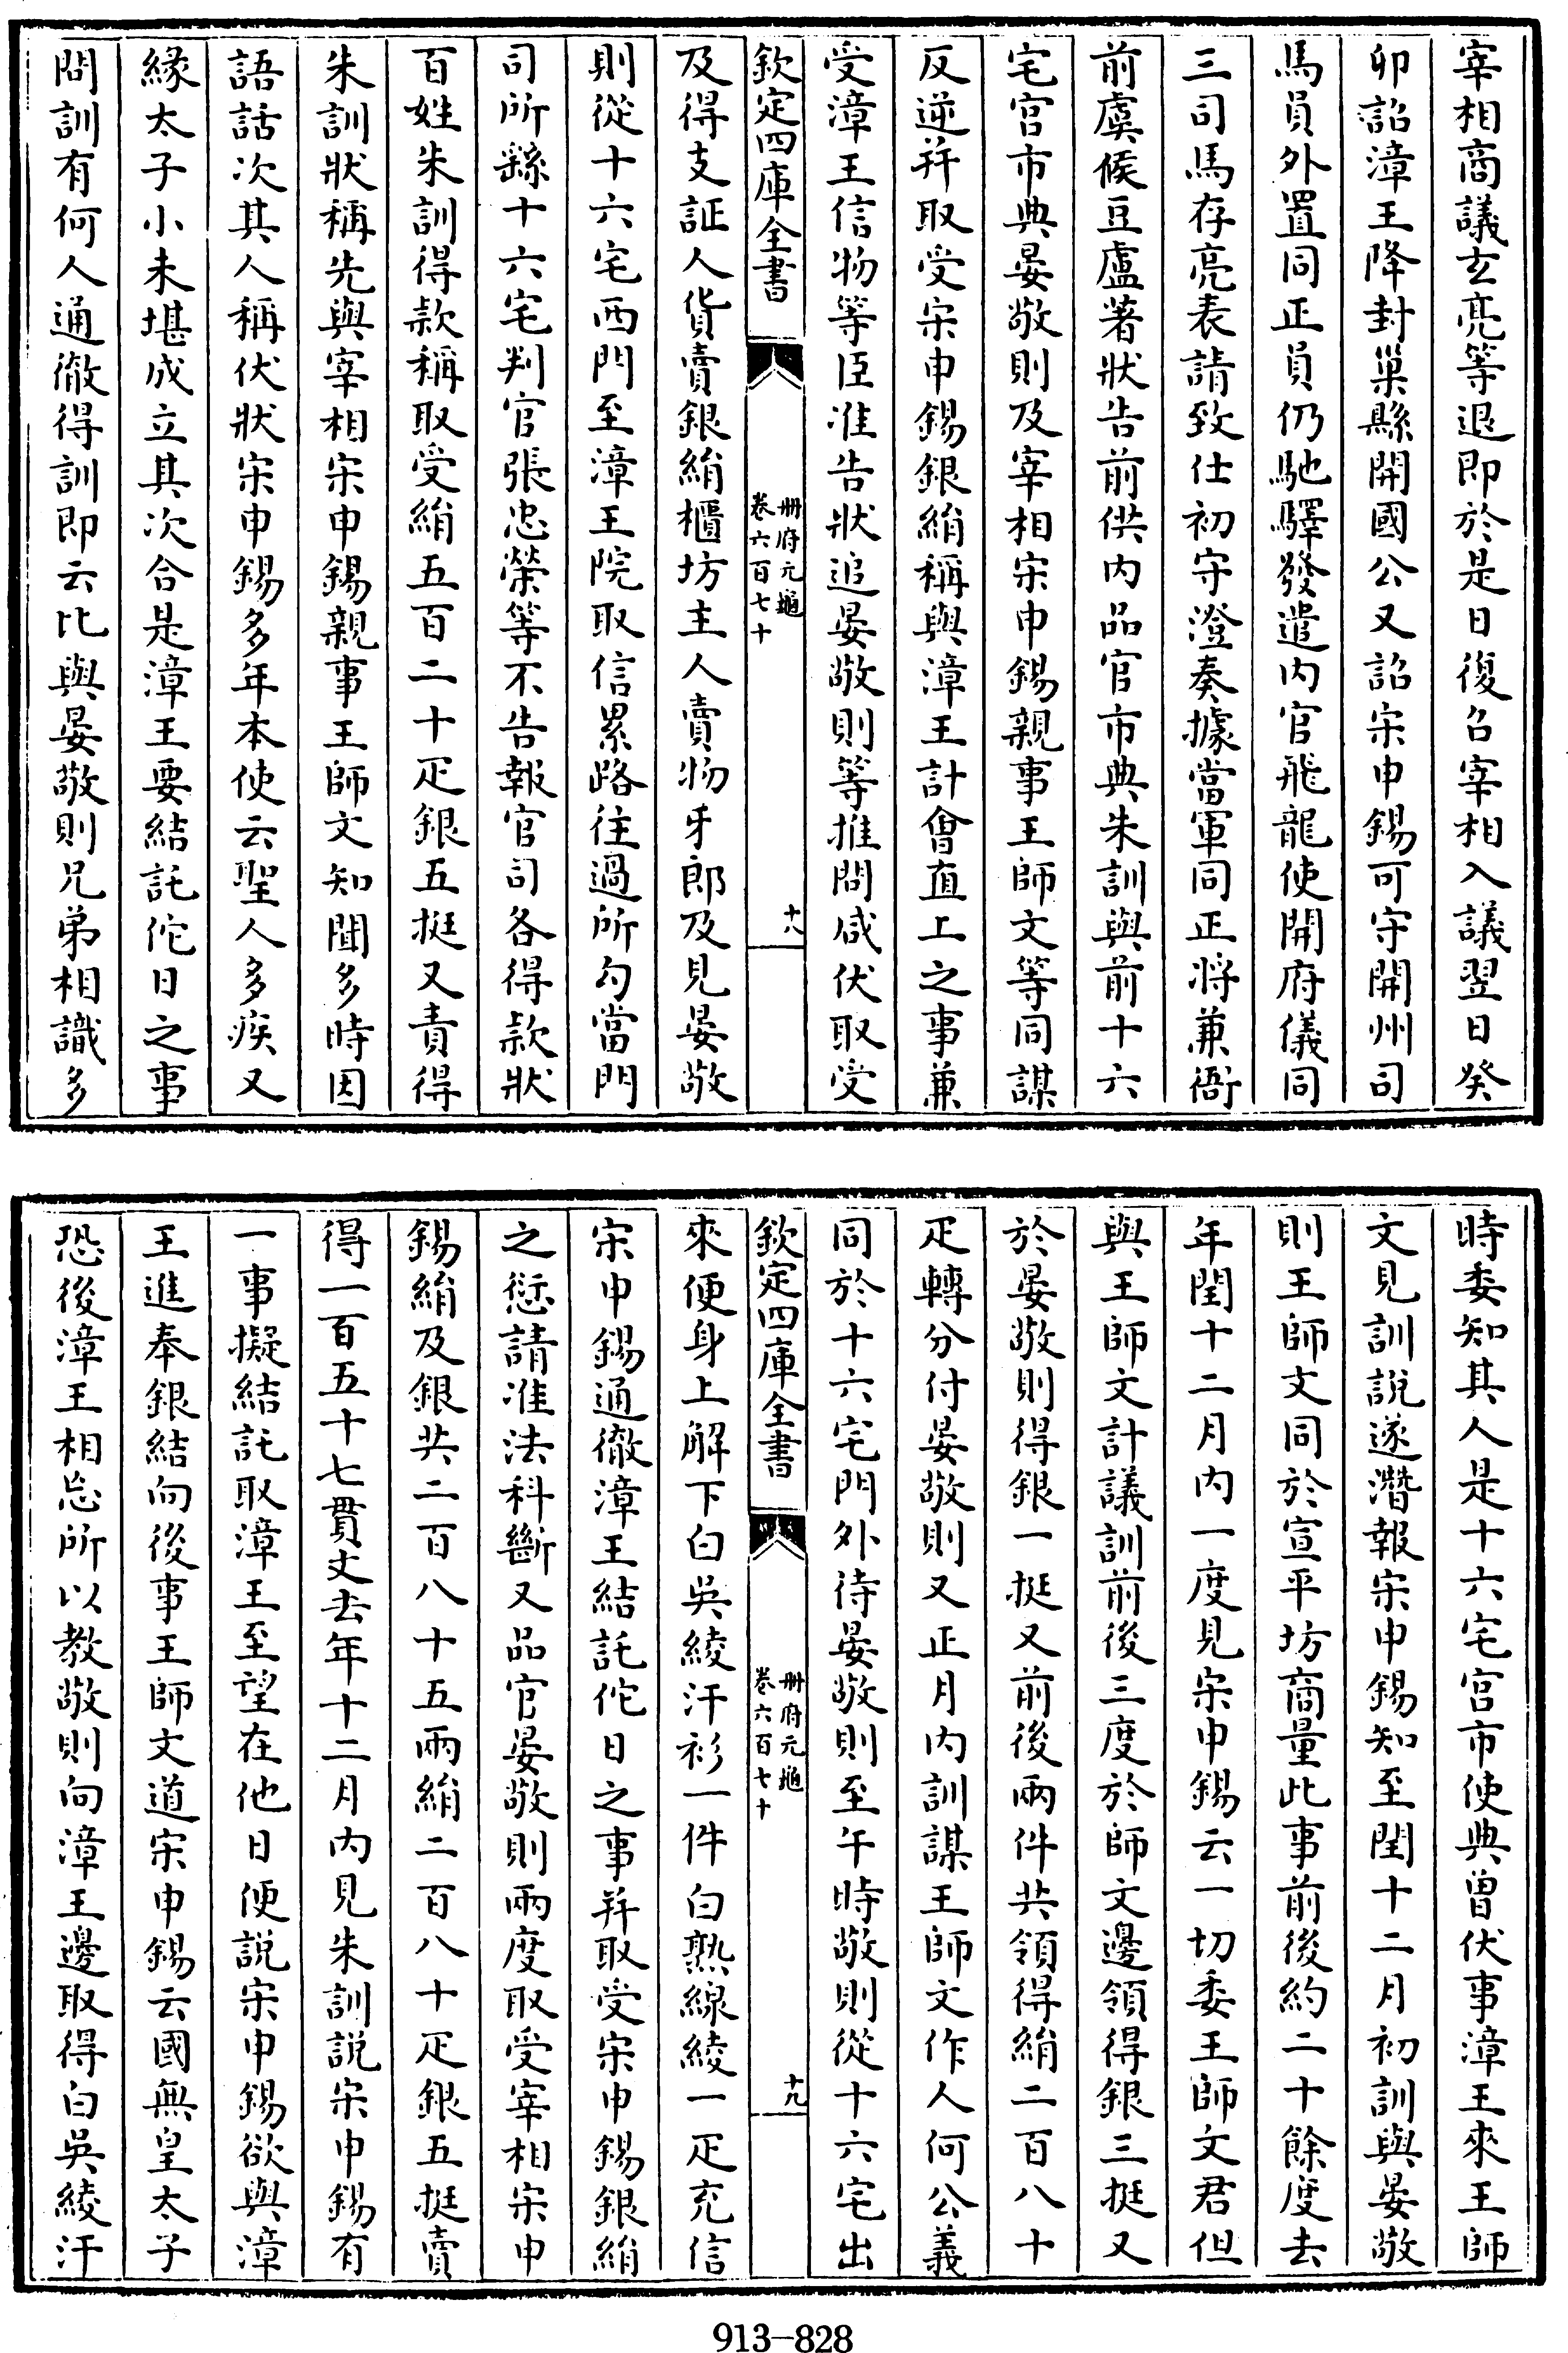 宰相商議玄亮等退即於是日復召宰相入議翌日癸
卯詔漳王降封巢縣開國公又詔宋申錫可守開州司
馬員外置同正員仍馳驛發遣内官飛龍使開府儀同
三司馬存亮表請致仕初守澄奏據當軍同正將兼衙
前虞候豆盧著狀告前供内品官市典朱訓與前十六
宅官市典晏敬則及宰相宋申錫親事王師文等同謀
反逆并取受宋申錫銀絹稱與漳王計會直上之事兼
受漳王信物等臣准告狀追晏敬則等推問咸伏取受
欽定四庫全書
冊府元龜
卷六百七十
十八
及得支証人貨賣銀絹櫃坊主人賣物牙郎及見晏敬
則從十六宅西門至漳王院取信累路往過所勾當門
司所繇十六宅判官張忠榮等不告報官司各得款狀
百姓朱訓得款稱取受絹五百二十疋銀五挺又責得
朱訓狀稱先與宰相宋申錫親事王師文知聞多時因
語話次其人稱伏狀宋申錫多年本使云聖人多疾又
緣太子小未堪成立其次合是漳王要結託佗日之事
問訓有何人通徹得訓即云比與晏敬則兄弟相識多
時委知其人是十六宅宫市使典曾伏事漳王來王師
文見訓說遂潛報宋申錫知至閏十二月初訓與晏敬
則王師文同於宣平坊商量此事前後約二十餘度去
年閏十二月内一度見宋申錫云一切委王師文君但
與王師文計議訓前後三度於師文邊領得銀三挺又
於晏敬則得銀一挺又前後兩件共領得絹二百八十
疋轉分付晏敬則又正月内訓謀王師文作人何公義
同於十六宅門外待晏敬則至午時敬則從十六宅出
欽定四庫全書
冊府元龜
卷六百七十
十九
來便身上解下白吳綾汗衫一件白熟線綾一疋充信
宋申錫通徹漳王結託佗日之事并取受宋申錫銀絹
之愆請准法科斷又品官晏敬則兩度取受宰相宋申
錫絹及銀共二百八十五兩絹二百八十疋銀五挺賣
得一百五十七貫文去年十二月内見朱訓說宋申錫有
一事擬結託取漳王至望在他日便說宋申錫欲與漳
王進奉銀結向後事王師文道宋申錫云國無皇太子
恐後漳王相忘所以教敬則向漳王邊取得白吳綾汗
913-828